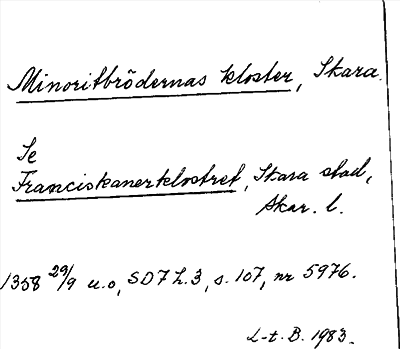 Minoritbrödernas kloster, Skara.
Se
Franciskanerklostret, Skara stad,
Skar. l.
1358 29/9 u.o, SD7 h.3, s. 107, nr 5976.
L-t. B. 1983.